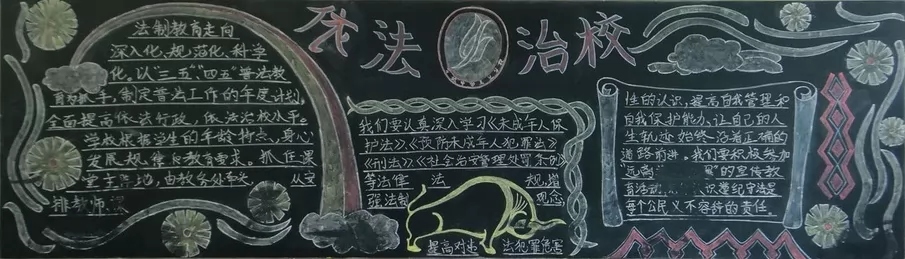 依法治校
法制教育走向
深入化、规范化、科学
化。以“三五”“四五”普法教
育为抓手,制定普法工作的年度计划,
全面提高依法行政,依法治校水平。
学校根据学生的年龄特点,身心
发展规律和教育需求。抓住课
堂主阵地,由教务处牵头
排教师
我们要认真深入学习《未成年人保
护法》、《预防未成年人犯罪法》
《刑法》、《社会治安管理处罚条例》
等法律 法 规,增
强法制 观念,
提高对违 法犯罪危害
性的认识,提高自我管理和
自我保护能力,让自己的人
生轨迹始终沿着正确的
道路前进。我们要积极参加
“远离 ”的宣传教
育活动, 认识遵纪守法是
每个公民义不容辞的责任。